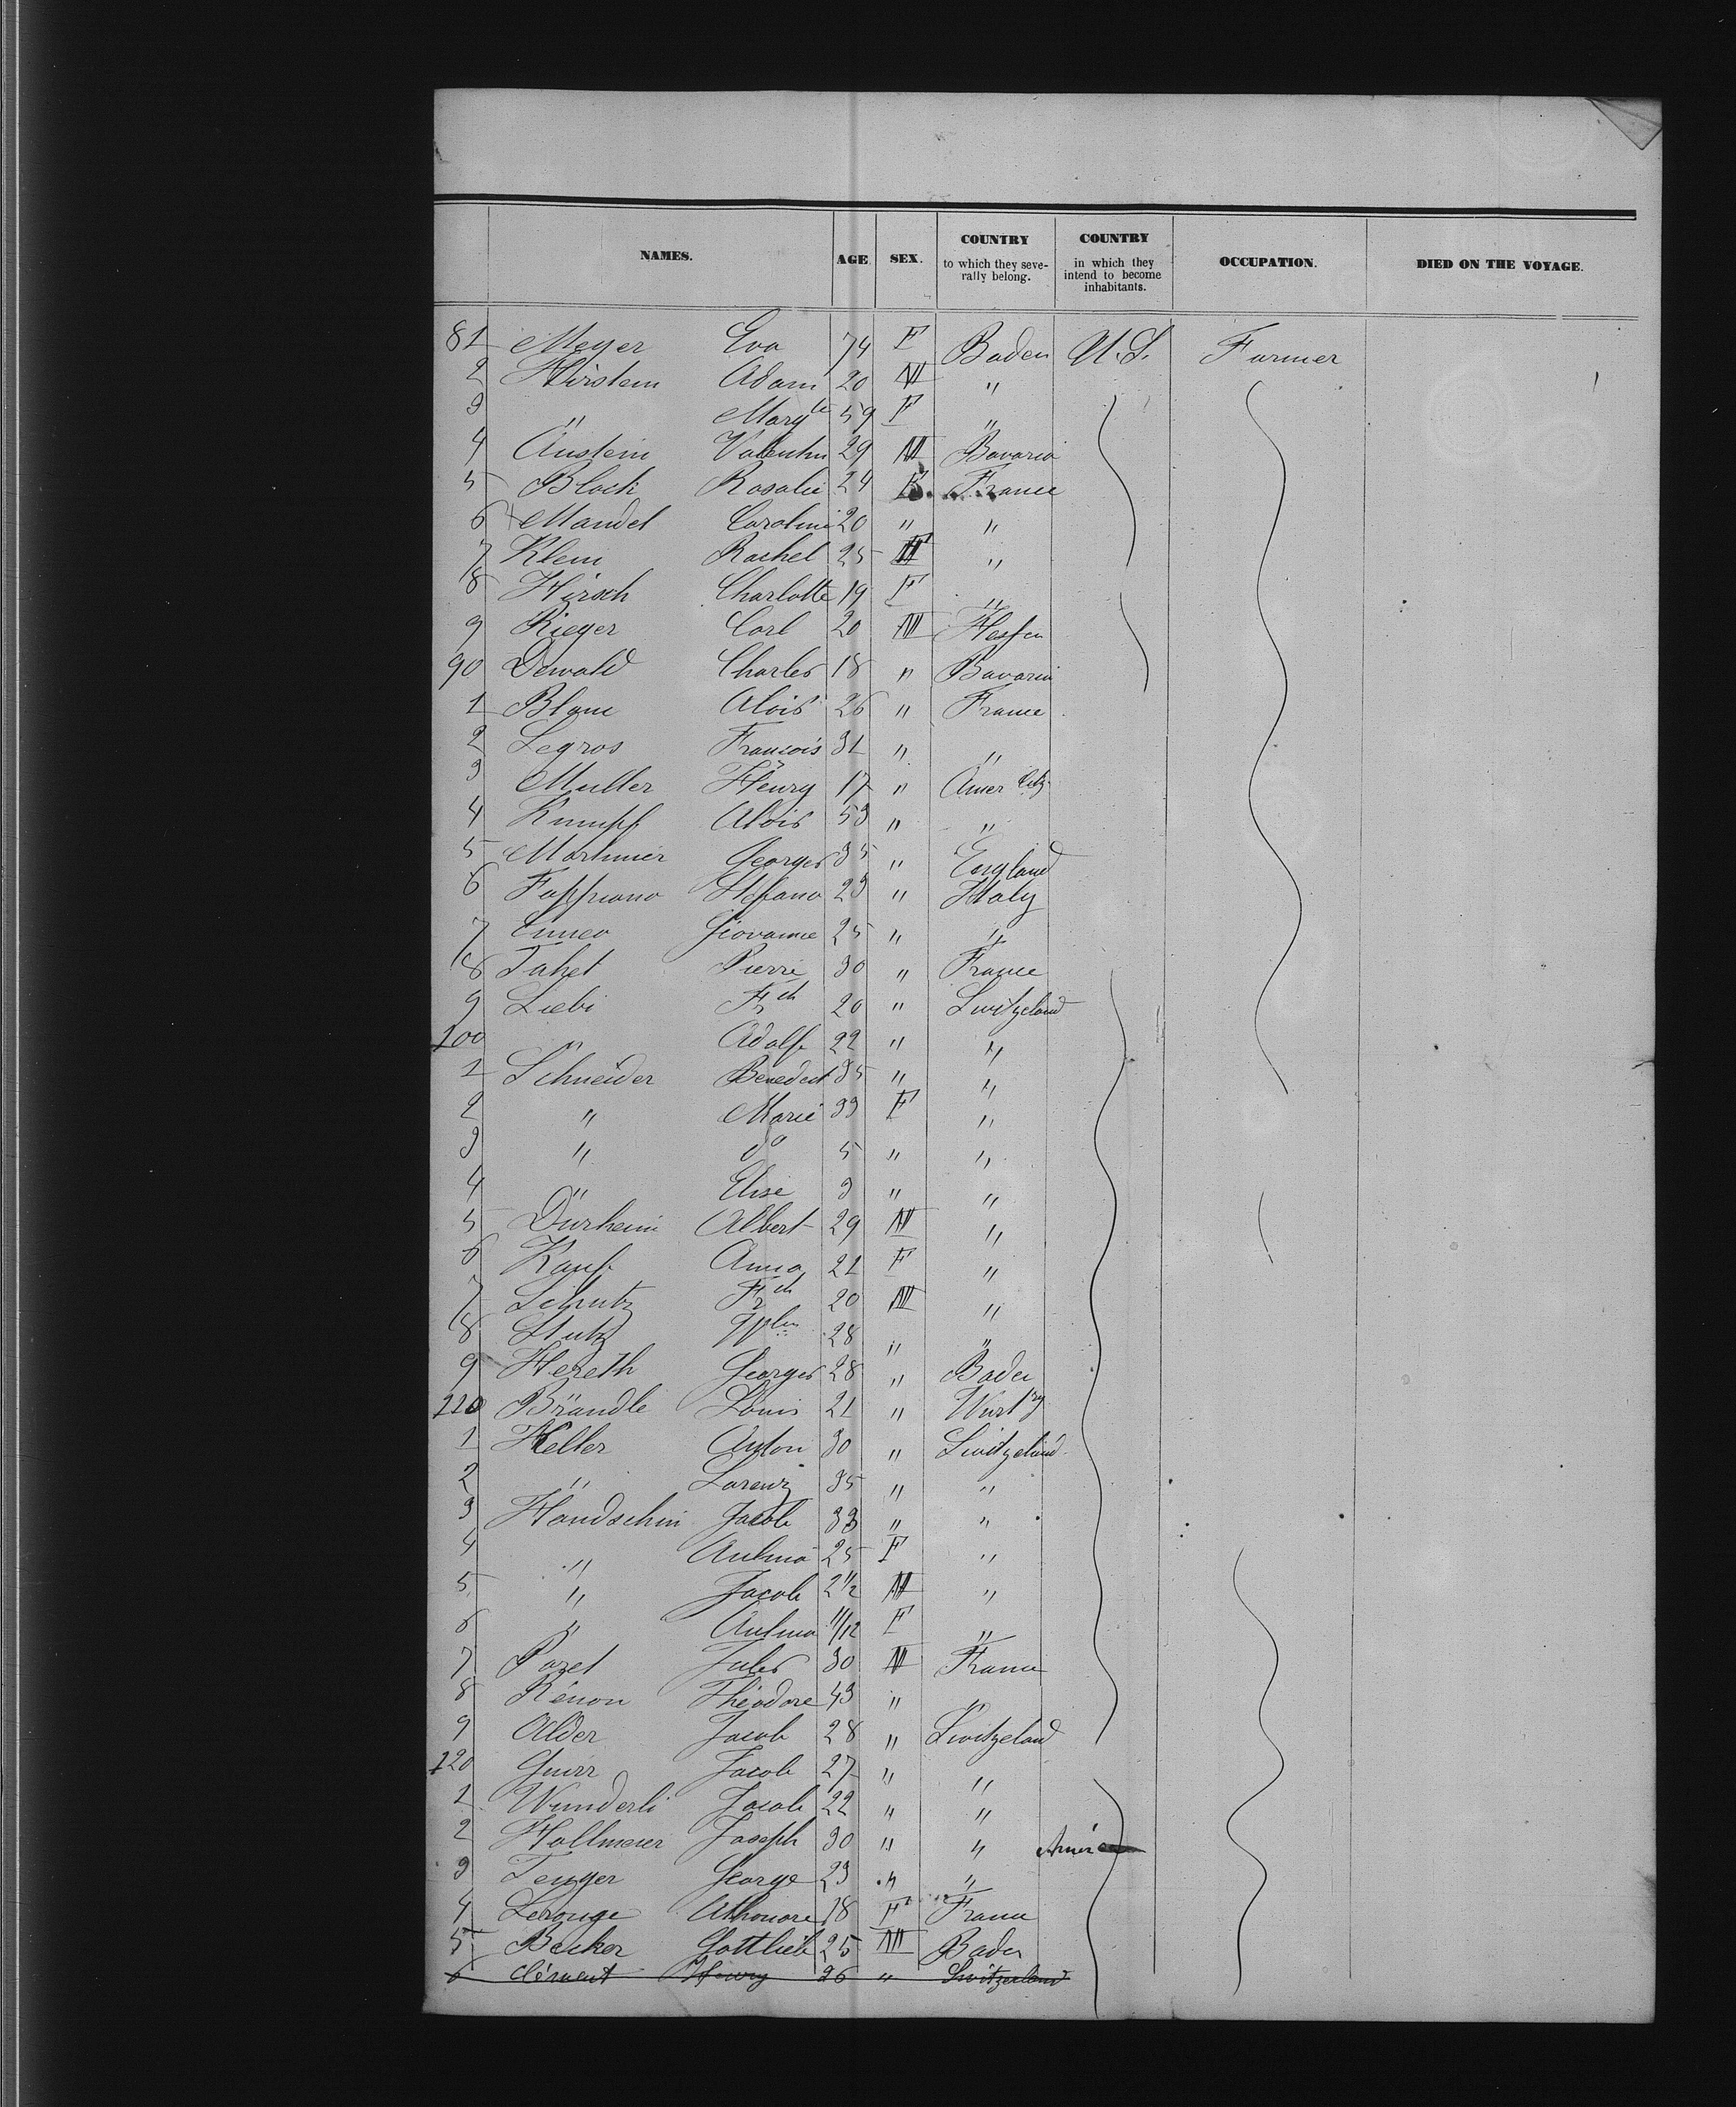 NAMES. AGE. SEX. COUNTRY to which they seve-rally belong. COUNTRY in which they intend to become inhabitants. OCCUPATION. DIED ON THE VOYAGE.
81 Meyer Eva 74 F Baden U.S. Farmer
2 Hirstein Adam 20 M "
3 " Margte 59 F "
4 Anstein Valentin 29 M Bavaria
5 Block Rosalie 24 France
6 Mandel Caroline 20 " "
7 Klein Rachel 25 F "
8 Hirsch Charlotte 19 F "
9 Rieger Carl 20 M Hessen
90 Dewald Charles 18 " Bavaria
1 Blanc Alois 26 " France
2 Legros Francois 31 " "
3 Muller Henry 17 " Amer Citz
4 Kumpf Alois 53 " "
5 Mortimer Georges 35 " England
6 Foppiano Stefano 23 " Italy
7 Cuneo Giovanne 25 " "
8 Tahet Pierre 30 " France
9 Liebi Frch 20 " Switzeland
100 " Adolf 22 " "
1 Schneider Benedict 35 " "
2 " Marie 33 F "
3 " do 5 " "
4 " Elise 3 " "
5 Dürheim Albert 29 M "
6 Kauf Anna 21 F "
7 Schutz Frch 20 M "
8 Stutz 28 " "
9 Hereth Georges 28 " Baden
110 Brändle Louis 21 " Wurtbg
1 Keller Anton 30 " Switzeland
2 " Lorenz 35 " "
3 Handschin Jacob 33 " "
4 " 25 F "
5 " Jacob 2 1/2 M "
6 " 11/12 F "
7 Poret Jules 30 M France
8 Rénon Théodore 43 " "
9 Alder Jacob 28 " Switzeland
120 Jacob 27 " "
1 Wunderli Jacob 22 " "
2 Hollmeier Joseph 30 " "
3 Tenger George 23 " "
4 Lerouge 18 F France
5 Becker Gottlieb 25 M Baden
6 Clément Henry 26 " Switzerland